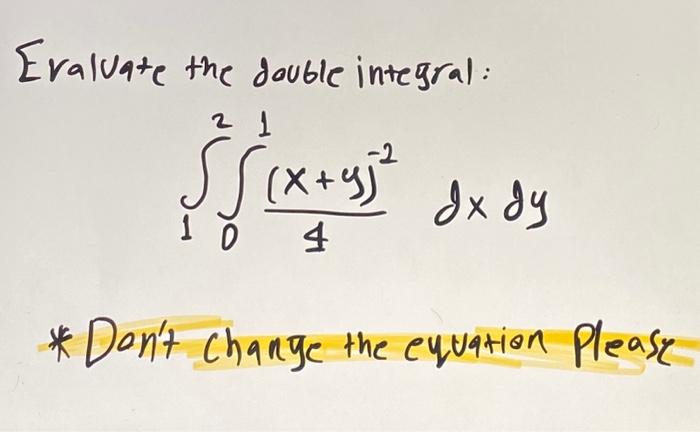 Evaluate the double integral:
2 1
∫ ∫ (x+y)^-2 / 4 dx dy
1 0
* Don't change the equation Please